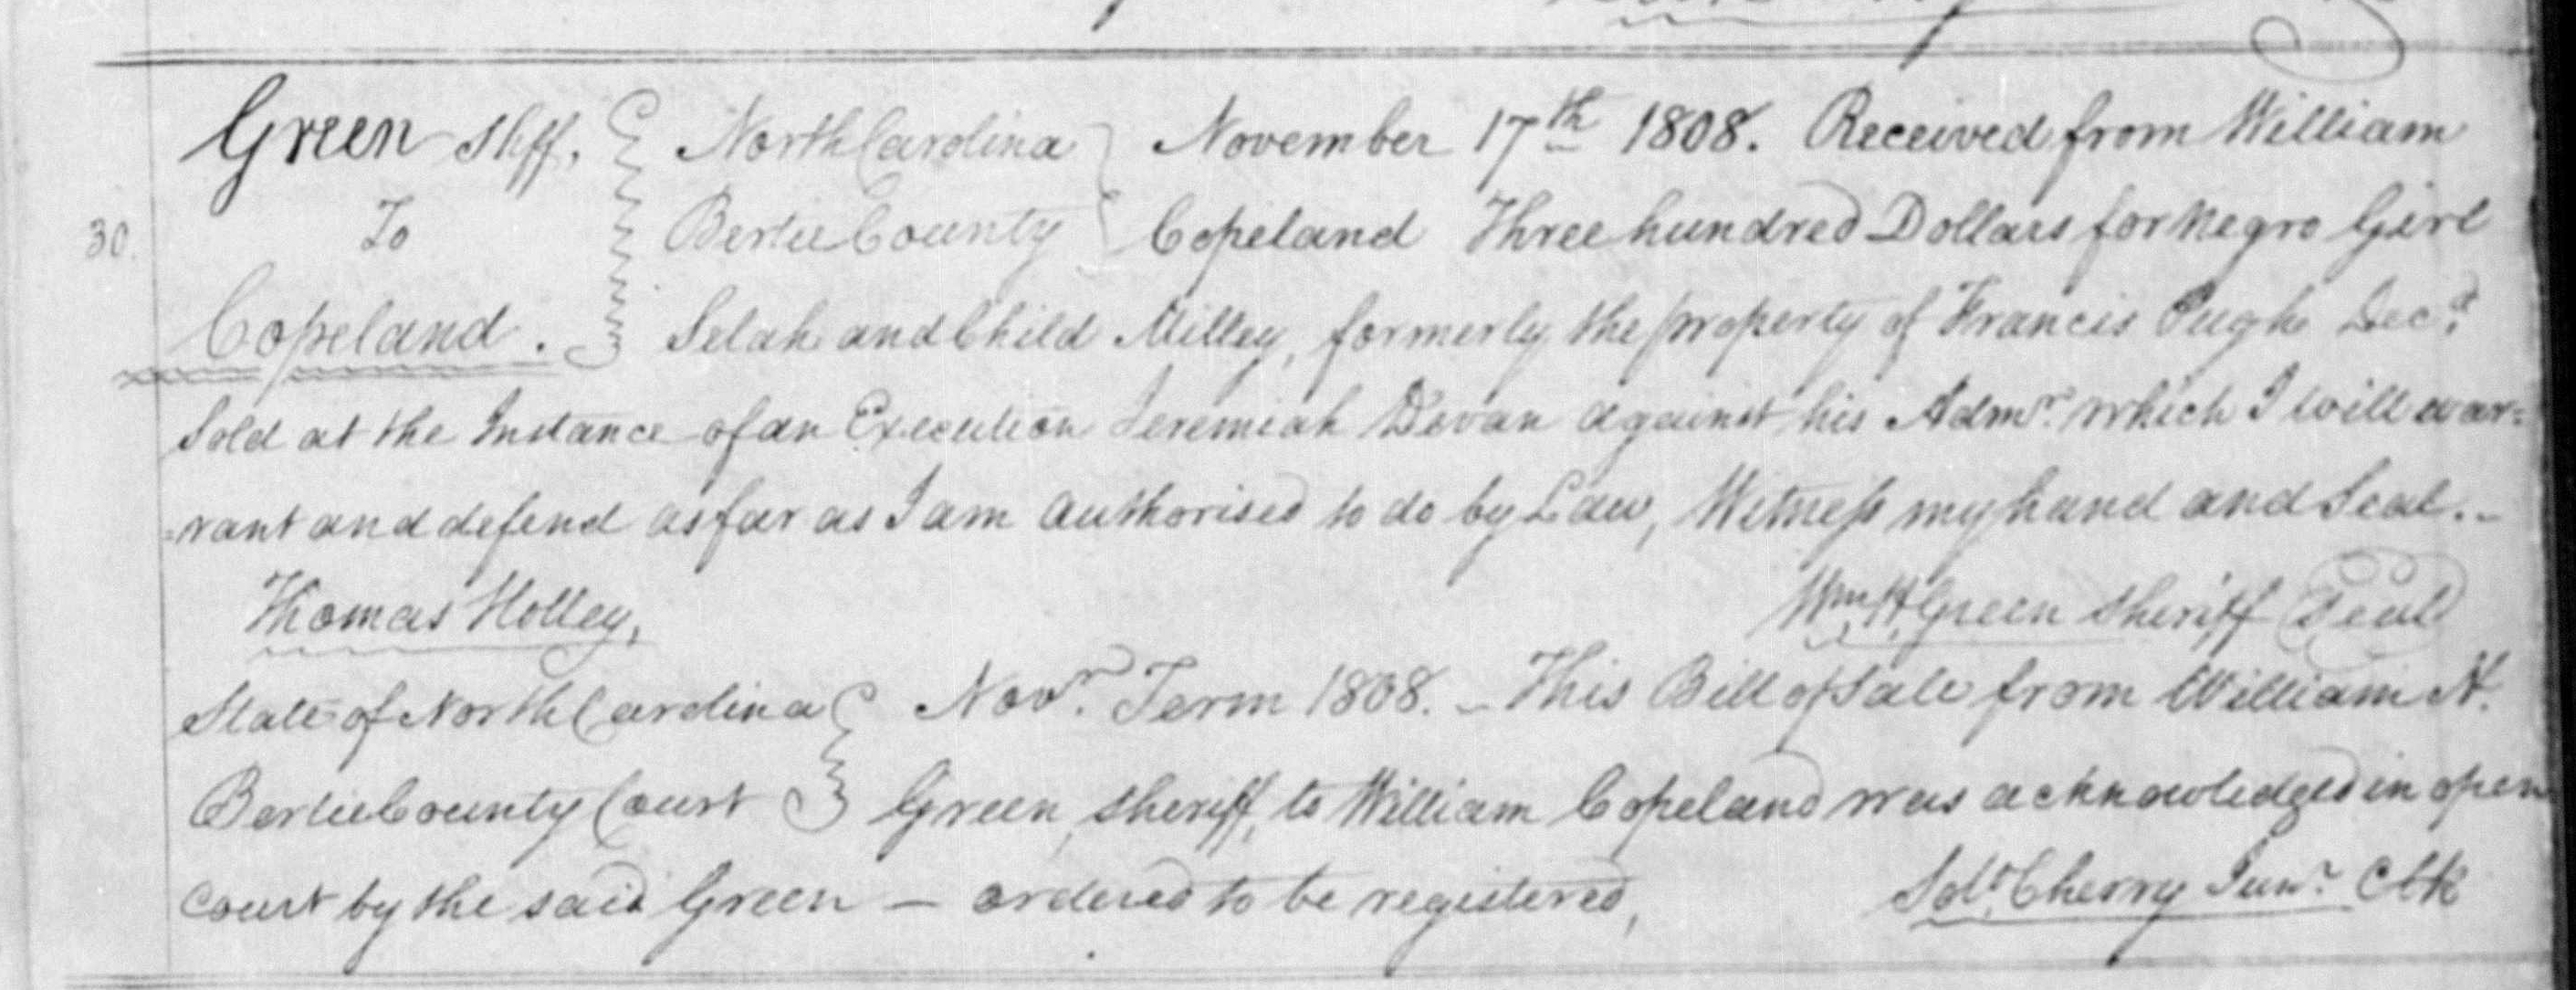 Green Shff. North Carolina November 17th 1808. Received from William
30. To Bertie County Copeland Three hundred Dollars for Negro Girl
Copeland. Selah and Child Milley, formerly the property of Francis Pugh Decd.
Sold at the Instance of an Execution Jeremiah Devan against his Admr. which I will war=
=rant and defend as far as I am authorised to do by Law, Witness my hand and Seal.-
Thomas Holley, Wm. H. Green Sheriff Seal
State of North Carolina Novr. Term 1808. - This Bill of Sale from William H.
Bertie County Court Green, Sheriff, to William Copeland was acknowledged in open
Court by the said Green — ordered to be registered, Solo. Cherry Junr. Clk